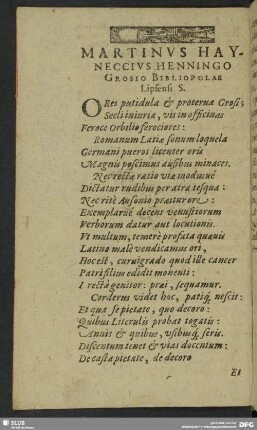 MARTINVS HAY-
NECCIVS HENNINGO
GROSIO BIBLIOPOLAE
Lipsensi S.
O Res putidula & proterua Grosi;
Secli iniuria, vis in officinas
Feroce Orbilio ferociores:
Romanum Latiæ sonum loquela
Germani pueros licenter oris
Magnis poscimus ausibus minaces.
Nec rectæ ratio via modusué
Dictatur rudibus per atra tesqua:
Nec ritè Ausonio præitur ore:
Exemplarué decens venustiorum
Verborum datur aut locutionis.
Vt multum, temerè profata quæuis
Latino malè vendicamus ori,
Hoc est, curuigrado quod ille cancer
Patris filius edidit monenti:
I recta genitor: præi, sequamur.
Corderus videt hoc, patiq; nescit:
Et qua se pietate, quo decoro:
Quibus Literulis probat togatis:
Annis & quibus, vsibusq; seris.
Discentum tenet & vias docentum:
De casta pietate, de decoro
Et
SLUB
DFG